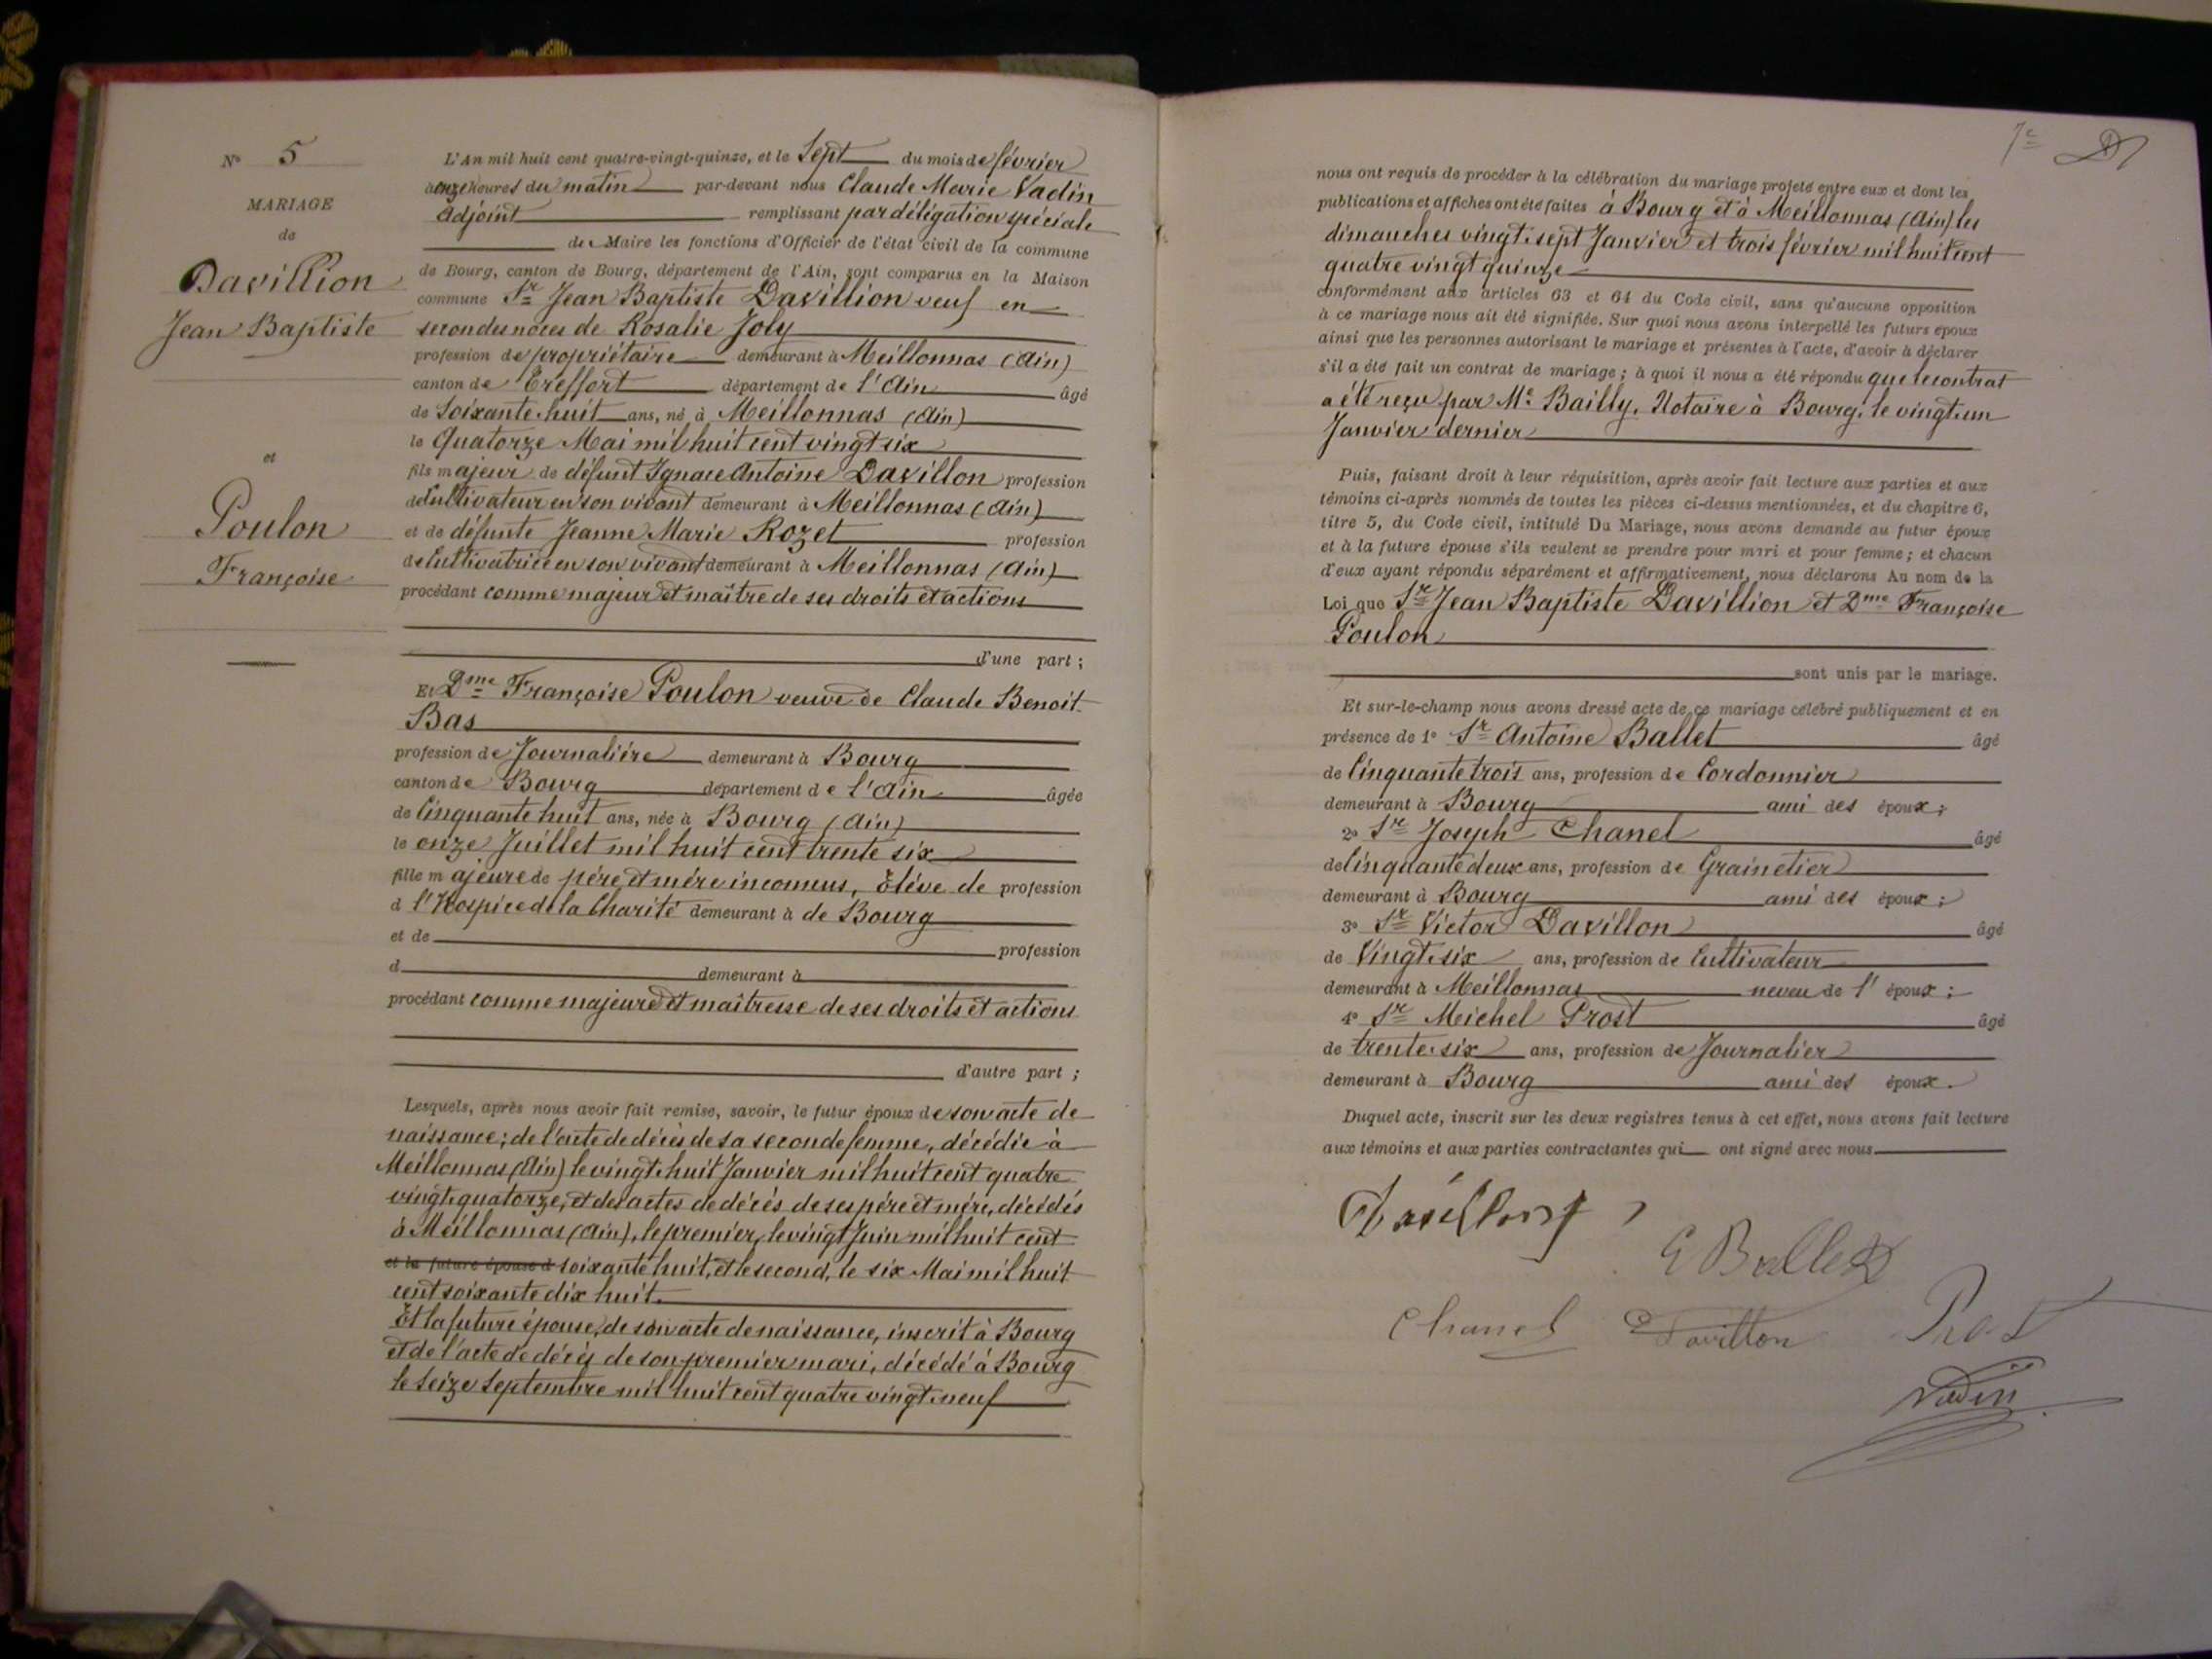 N° 5
MARIAGE
de
Davillion
Jean Baptiste
et
Poulon
Françoise
L'An mil huit cent quatre-vingt-quinze, et le Sept du mois de février
à onze heures du matin par-devant nous Claude Marie Vadin
adjoint remplissant par délégation spéciale
de Maire les fonctions d'Officier de l'état civil de la commune
de Bourg, canton de Bourg, département de l'Ain, sont comparus en la Maison
commune Sr Jean Baptiste Davillion veuf en
secondes noces de Rosalie Joly
profession de propriétaire demeurant à Meillonnas (Ain)
canton de Treffort département de l'Ain âgé
de Soixante huit ans, né à Meillonnas (Ain)
le Quatorze Mai mil huit cent vingt six
fils majeur de défunt Ignace Antoine Davillon profession
de Cultivateur en son vivant demeurant à Meillonnas (Ain)
et de défunte Jeanne Marie Rozet profession
de Cultivatrice en son vivant demeurant à Meillonnas (Ain)
procédant comme majeur et maître de ses droits et actions
d'une part ;
Et Dme Françoise Poulon veuve de Claude Benoit
Bas
profession de Journalière demeurant à Bourg
canton de Bourg département de l'Ain âgée
de Cinquante huit ans, née à Bourg (Ain)
le onze Juillet mil huit cent trente six
fille majeure de père et mère inconnus, Elève de profession
d l'Hospice de la Charité demeurant à de Bourg
et de profession
d demeurant à
procédant comme majeure et maîtresse de ses droits et actions
d'autre part ;
Lesquels, après nous avoir fait remise, savoir, le futur époux de son acte de
naissance ; de l'acte de décès de sa seconde femme, décédée à
Meillonnas (Ain) le vingt-huit Janvier mil huit cent quatre
vingt-quatorze, et des actes de décès de ses père et mère, décédés
à Meillonnas (Ain), le premier, le vingt Juin mil huit cent
et la future épouse d soixante huit, et le second, le six Mai mil huit
cent soixante dix huit.
Et la future épouse, de son acte de naissance, inscrit à Bourg
et de l'acte de décès de son premier mari, décédé à Bourg
le seize Septembre mil huit cent quatre vingt-neuf
7e
nous ont requis de procéder à la célébration du mariage projeté entre eux et dont les
publications et affiches ont été faites à Bourg et à Meillonnas (Ain) les
dimanches vingt-sept Janvier et trois février mil huit cent
quatre vingt quinze
conformément aux articles 63 et 64 du Code civil, sans qu'aucune opposition
à ce mariage nous ait été signifiée. Sur quoi nous avons interpellé les futurs époux
ainsi que les personnes autorisant le mariage et présentes à l'acte, d'avoir à déclarer
s'il a été fait un contrat de mariage ; à quoi il nous a été répondu que le contrat
a été reçu par Me Bailly, Notaire à Bourg, le vingt-un
Janvier dernier
Puis, faisant droit à leur réquisition, après avoir fait lecture aux parties et aux
témoins ci-après nommés de toutes les pièces ci-dessus mentionnées, et du chapitre 6,
titre 5, du Code civil, intitulé Du Mariage, nous avons demandé au futur époux
et à la future épouse s'ils veulent se prendre pour mari et pour femme ; et chacun
d'eux ayant répondu séparément et affirmativement, nous déclarons Au nom de la
Loi que Sr Jean Baptiste Davillion et Dme Françoise
Poulon
sont unis par le mariage.
Et sur-le-champ nous avons dressé acte de ce mariage célébré publiquement et en
présence de 1° Sr Antoine Ballet âgé
de Cinquante trois ans, profession de Cordonnier
demeurant à Bourg ami des époux ;
2° Sr Joseph Chanel âgé
de Cinquante deux ans, profession de Grainetier
demeurant à Bourg ami des époux ;
3° Sr Victor Davillon âgé
de Vingt-six ans, profession de Cultivateur
demeurant à Meillonnas neveu de l' époux ;
4° Sr Meichel Prost âgé
de trente-six ans, profession de Journalier
demeurant à Bourg ami des époux.
Duquel acte, inscrit sur les deux registres tenus à cet effet, nous avons fait lecture
aux témoins et aux parties contractantes qui ont signé avec nous
Ballet
Chanel Davillon Prost
Vadin